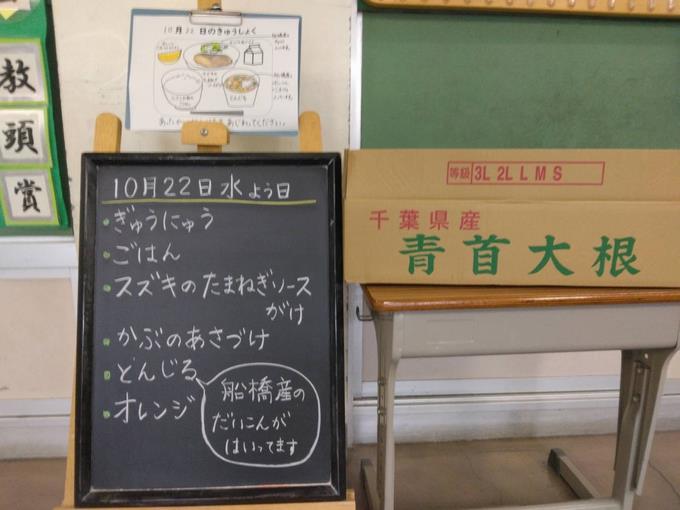 10月22日のきゅうしょく
教
頭
賞
10月22日水よう日
・ぎゅうにゅう
・ごはん
・スズキのたまねぎソース
がけ
・かぶのあさづけ
・とんじる
・オレンジ
船橋産の
だいこんが
はいってます
等級 3L 2L L M S
千葉県産
青首大根